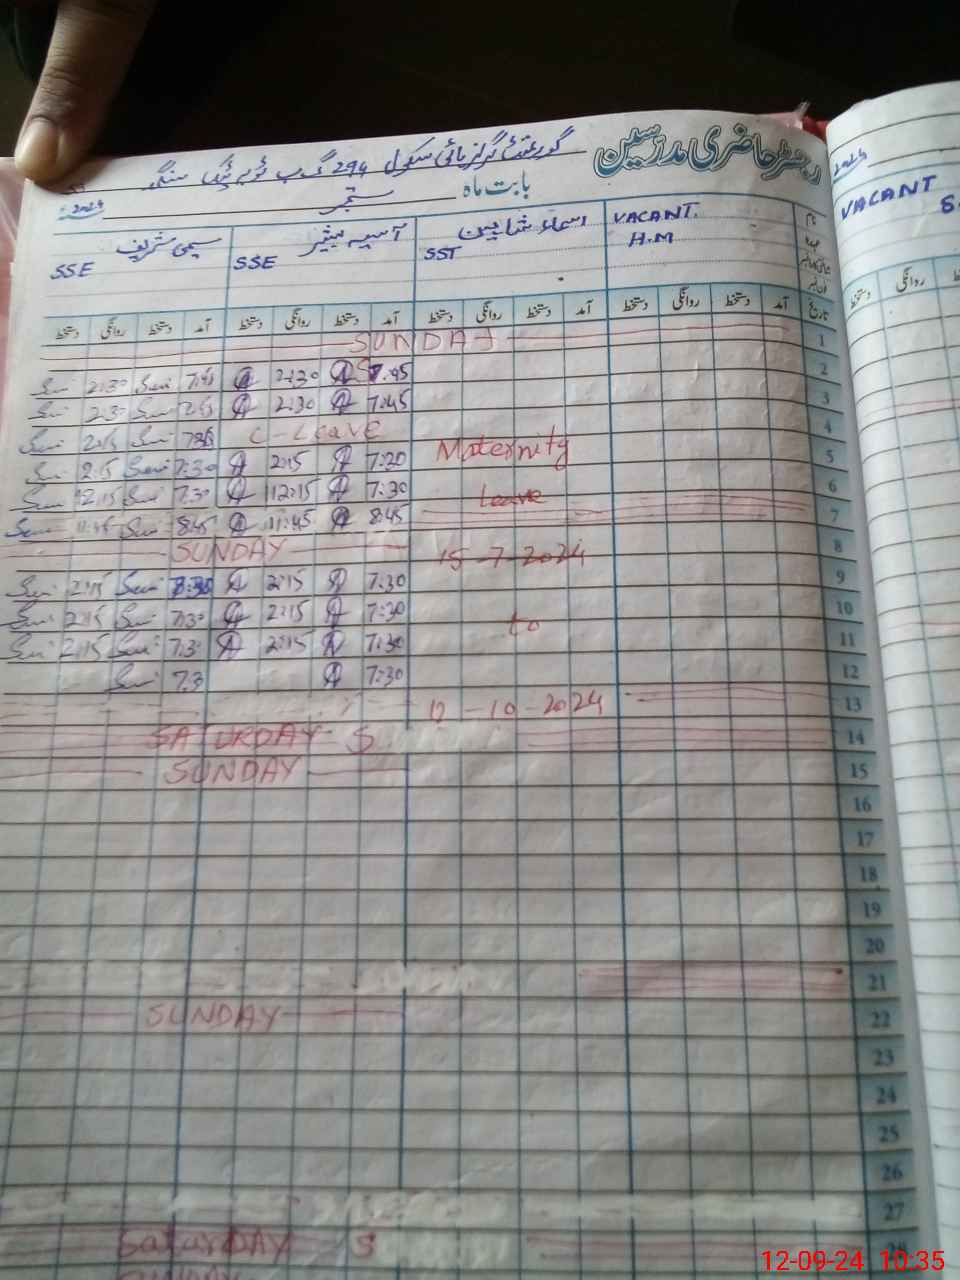 رجسٹر حاضری مدرسین
گورنمنٹ گرلز ہائی سکول 294 گ ب ٹوبہ ٹیک سنگھ
بابت ماہ ستمبر 2024
نام VACANT. اسماء شاہین آسیہ بشیر سیمی شریف
عہدہ H.M SST SSE SSE
تاریخ آمد دستخط روانگی دستخط آمد دستخط روانگی دستخط آمد دستخط روانگی دستخط آمد دستخط روانگی دستخط
1 SUNDAY
2 7:45 2:30 7:45 2:30
3 7:45 2:30 7:45 2:30
4 C-Leave 2:15
5 Maternity 7:30 2:15 7:30 2:15
6 Leave 7:30 12:15 7:30 12:15
7 8:45 11:45 8:45 11:45
8 15-7-2024 SUNDAY
9 7:30 2:15 8:30 2:15
10 7:30 2:15 7:30 2:15
11 to 7:30 2:15 7:30 2:15
12 7:30 7:3
13 12-10-2024
14 SATURDAY S
15 SUNDAY
16
17
18
19
20
21
22 SUNDAY
23
24
25
26
27
28 Saturday S
SUNDAY
2024
VACANT
S.
دستخط روانگی
12-09-24 10:35